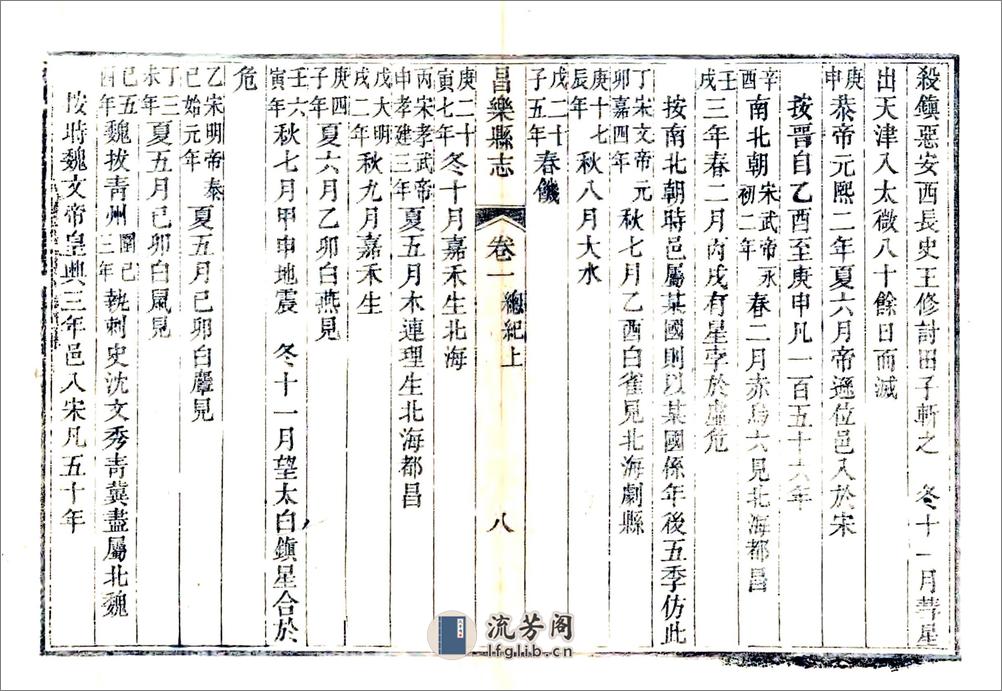 殺鎭惡安西長史王修討田子斬之　冬十一月彗星
出天津入太微八十餘日而滅
庚申　恭帝元熙二年夏六月帝遜位邑入於宋
按晉自乙酉至庚申凡一百五十六年
辛酉　南北朝宋武帝永初二年春二月赤烏六見北海都昌
壬戌　三年春二月丙戌有星孛於虛危
按南北朝時邑屬某國則以某國係年後五季仿此
丁卯　宋文帝元嘉四年　秋七月乙酉白雀見北海劇縣
庚辰　十七年　秋八月大水
戊子　二十五年　春饑
昌樂縣志　卷一　總紀上　八
庚寅　二十七年　冬十月嘉禾生北海
丙申　宋孝武帝孝建三年　夏五月木連理生北海都昌
戊戌　大明二年　秋九月嘉禾生
庚子　四年　夏六月乙卯白燕見
壬寅　六年　秋七月甲申地震　冬十一月望太白鎭星合於
危
乙巳　宋明帝泰始元年　夏五月己卯白麞見
丁未　三年　夏五月己卯白鼠見
己酉　五年　魏拔青州圍已三年執刺史沈文秀青冀盡屬北魏
按時魏文帝皇興三年邑入宋凡五十年
流芳阁
lfglib.cn